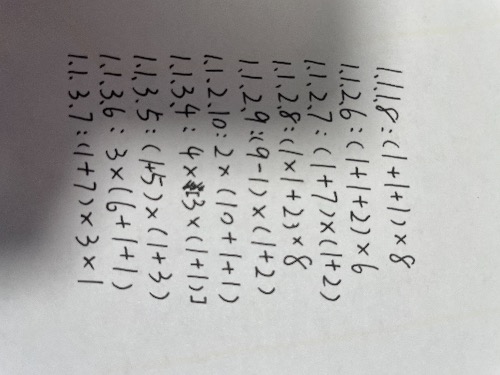 1.1.1.8:(1+1+1)×8
1.1.2.6:(1+1+2)×6
1.1.2.7:(1+7)×(1+2)
1.1.2.8:(1×1+2)×8
1.1.2.9:(9-1)×(1+2)
1.1.2.10:2×(10+1+1)
1.1.3.4:4×[3×(1+1)]
1.1.3.5:(1+5)×(1+3)
1.1.3.6:3×(6+1+1)
1.1.3.7:(1+7)×3×1